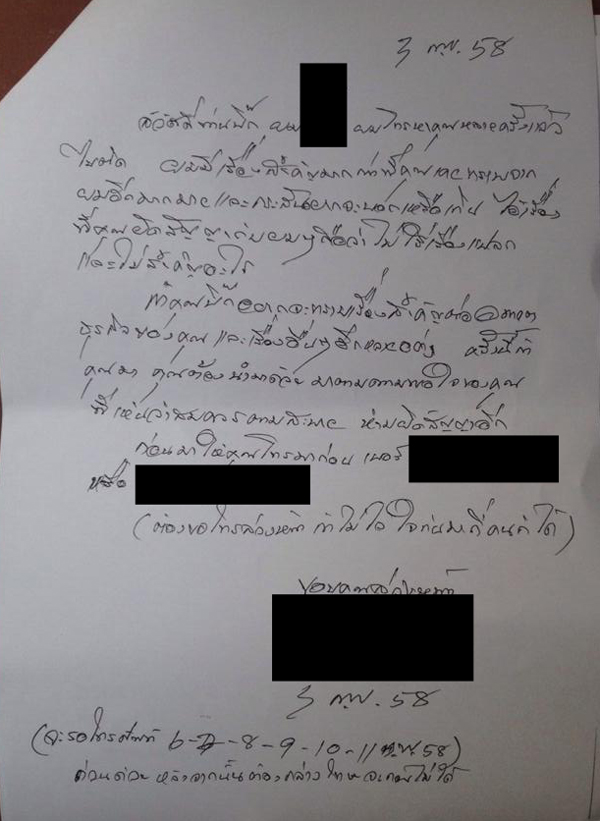 3 ก.พ. 58
สวัสดีท่านบิ๊ก ผม ผมโทรหาคุณหลายครั้งแล้ว
ไม่ติด ผมมีเรื่องสำคัญมากที่คุณ จาก
ผมอีกมากมายและ
ที่คุณผิดสัญญากับผมๆถือว่าไม่ใช่เรื่องแปลก
และไม่สำคัญอะไร
ถ้าคุณบิ๊กอยากจะทราบเรื่องสำคัญต่ออนาคต
ธุรกิจของคุณและเรื่องอื่นๆอีกหลายอย่าง ครั้งนี้ถ้า
คุณมา คุณต้องนำมาด้วย มาตามความพอใจของคุณ
ที่เห็นว่าสมควรตามสบาย ห้ามผิดสัญญาอีก
ก่อนมาให้คุณโทรมาก่อน เบอร์
หรือ
(ต้องขอโทษล่วงหน้า ถ้าไม่ไว้ใจท่านมากี่คนก็ได้)
ขอบคุณล่วงหน้า
3 ก.พ. 58
(จะรอโทรศัพท์ 6-7-8-9-10-11 ก.พ. 58)
ด่วนด้วย หลังจากนั้นต้อง ไม่ได้